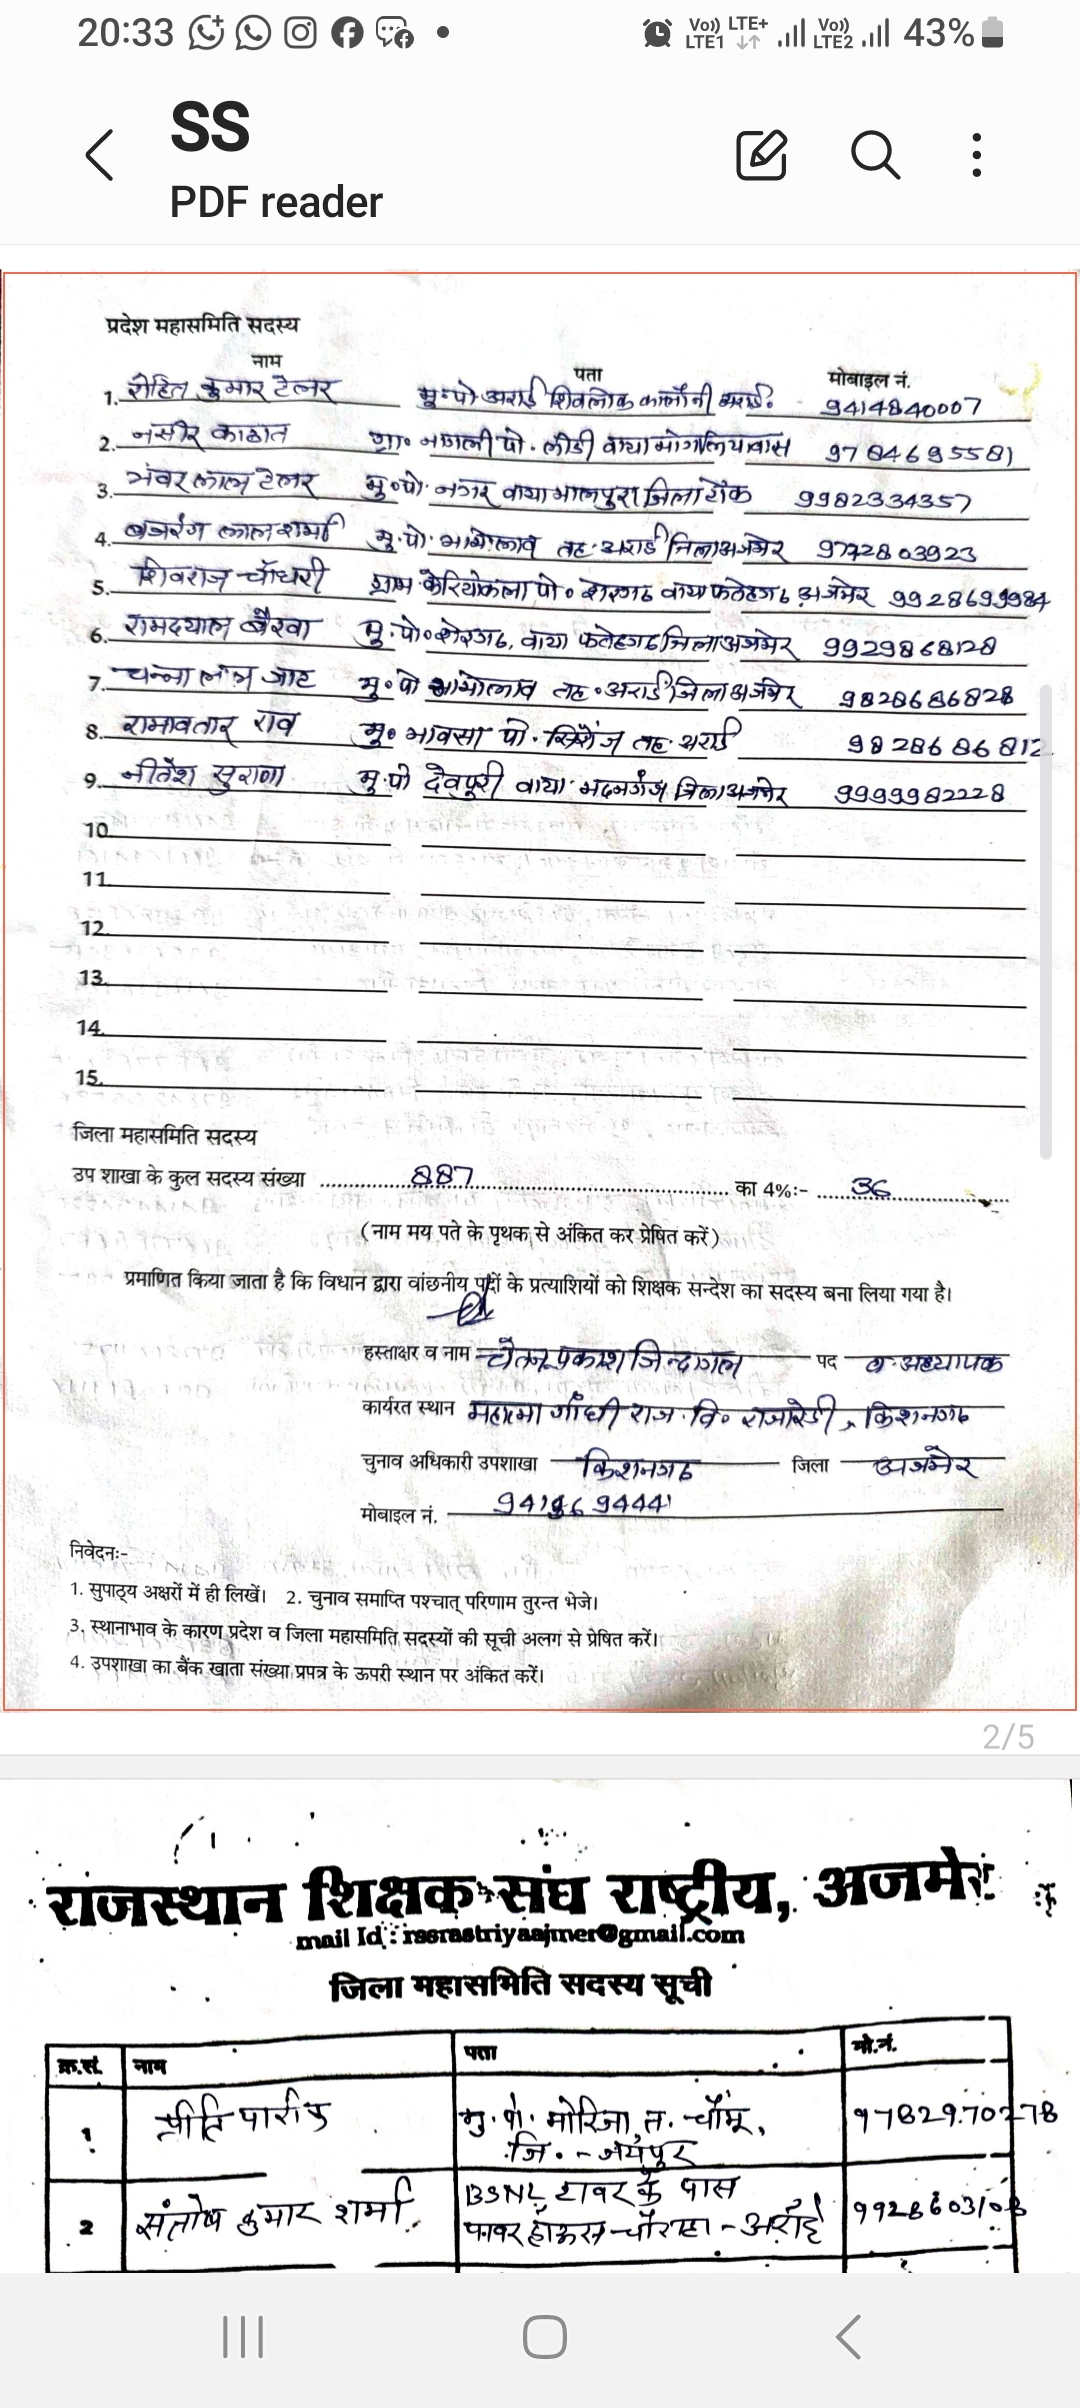 20:33 43%
Vo)) LTE+ Vo))
LTE1 LTE2
SS
PDF reader
प्रदेश महासमिति सदस्य
नाम पता मोबाइल नं.
1. रोहित कुमार टेलर मु.पो अराई शिवलोक कालोनी अराई. 9414840007
2. नसीर काठात ग्रा० पो. लीडी वाया मांगलियावास 9784695581
3. भंवर लाल टेलर मु०पो. नगर वाया मालपुरा जिला टोंक 9982334357
4. बजरंग लाल शर्मा मु.पो. तह. अराई जिला अजमेर 9772803923
5. शिवराज चौधरी ग्राम पो० वाया फतेहगढ अजमेर 9928699984
6. रामदयाल बैरवा मु.पो० वाया फतेहगढ जिला अजमेर 9929868128
7. चन्ना लाल जाट मु०पो तह०अराई जिला अजमेर 9828686828
8. रामावतार राव मु० पो. तह. अराई 9828686812
9. नीतेश सुराणा मु.पो देवपूरी वाया मदनगंज जिला अजमेर 9999982228
10.
11.
12.
13.
14.
15.
जिला महासमिति सदस्य
उप शाखा के कुल सदस्य संख्या 887 का 4%:- 36
(नाम मय पते के पृथक से अंकित कर प्रेषित करें)
प्रमाणित किया जाता है कि विधान द्वारा वांछनीय पदों के प्रत्याशियों को शिक्षक सन्देश का सदस्य बना लिया गया है।
हस्ताक्षर व नाम चेतन प्रकाश जिन्दागल पद व. अध्यापक
कार्यरत स्थान महात्मा गाँधी राज. वि० राजारेडी, किशनगढ
चुनाव अधिकारी उपशाखा किशनगढ जिला अजमेर
मोबाइल नं.
निवेदनः-
1. सुपाठ्य अक्षरों में ही लिखें। 2. चुनाव समाप्ति पश्चात् परिणाम तुरन्त भेजे।
3. स्थानाभाव के कारण प्रदेश व जिला महासमिति सदस्यों की सूची अलग से प्रेषित करें।
4. उपशाखा का बैंक खाता संख्या प्रपत्र के ऊपरी स्थान पर अंकित करें।
2/5
राजस्थान शिक्षक संघ राष्ट्रीय, अजमेर
mail Id : rssrastriyaajmer@gmail.com
जिला महासमिति सदस्य सूची
क्र.सं. नाम पता मो.नं.
1 प्रीति पारीक मु.पो. मोरिजा, त. - चौमू, 9782970278
जि. - जयपुर
2 संतोष कुमार शर्मा BSNL टावर के पास 9928603108
पावर हाऊस चौराहा - अराई